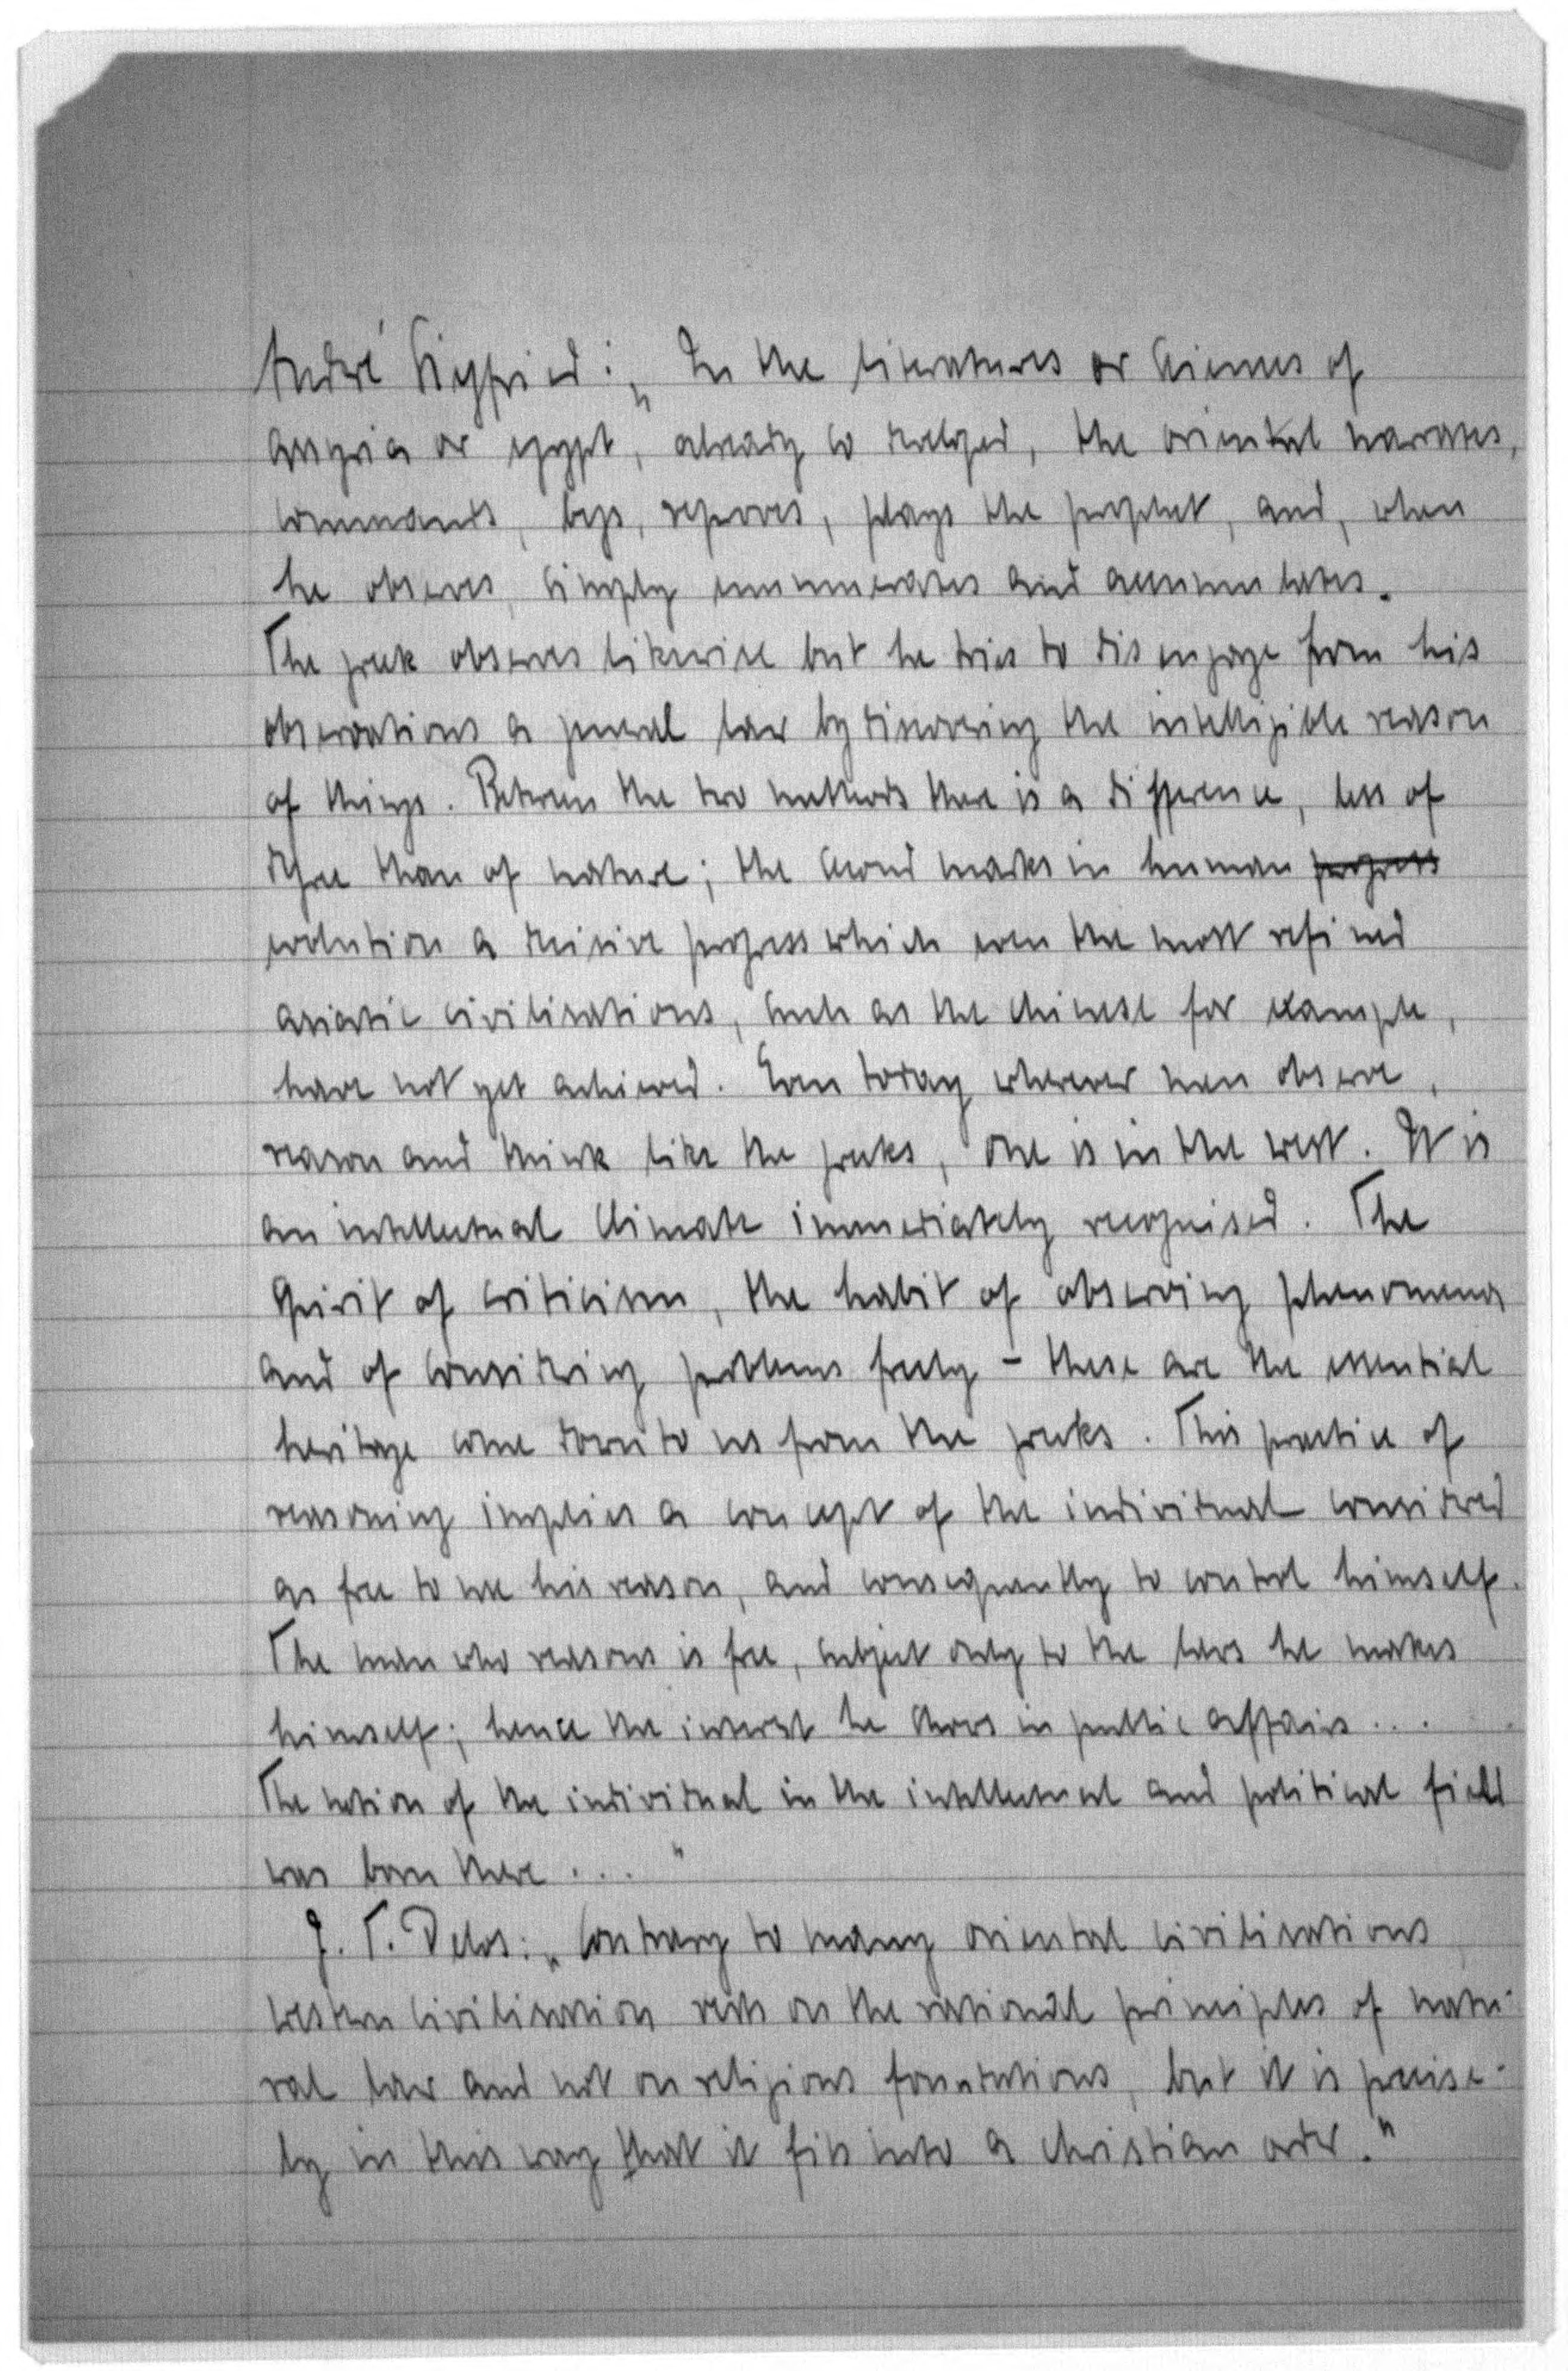 André Sigfried: „In the literatures or sciences of
assyria or egypt, already so developed, the oriental narrates,
commands, begs, reproves, plays the prophet, and, when
he observes, simply ennumerates and accumulates.
The greek observes likewise but he tries to disengage from his
observations a general law by discovering the intelligible reason
of things. Between the two methods there is a difference, less of
degree than of nature; the second marks in human progress
evolution a decisive progress which even the most refined
asiatic civilisations, such as the chinese for example,
have not yet achieved. Even today wherever men observe,
reason and think like the greeks, one is in the west. It is
an intellectual climate immediately recognised. The
spirit of criticism, the habit of observing phenomena
and of considering problems freely – these are the essential
heritage come down to us from the greeks. This practice of
reasoning implies a concept of the individual considered
as free to use his reason, and consequently to control himself.
The man who reasons is free, subject only to the laws he makes
himself; hence the interest he shows in public affairs...
The notion of the individual in the intellectual and political field
was born there ... "
J. T. Delos: „Contrary to many oriental civilisations
western civilisation rests on the rational principles of natu-
ral law and not on religious foundations, but it is precise-
ly in this way that it fits into a christian order."